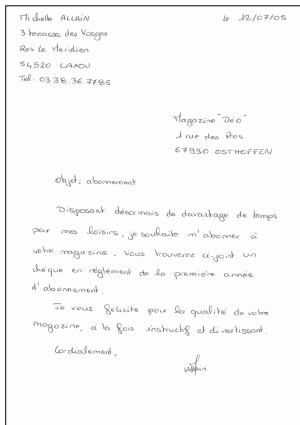 Michelle ALLAIN
le 12/07/05
3 terrasse des Vosges
Res Le Meridien
54520 LAXOU
Tel: 03.38.36.7785
Magazine "Déo"
1 rue des Pros
67990 OSTHOFFEN
Objet: abonnement
Disposant désormais de davantage de temps
pour mes loisirs, je souhaite m'abonner à
votre magazine. Vous trouverez ci-joint un
chèque en règlement de la première année
d'abonnement.
Je vous félicite pour la qualité de votre
magazine, à la fois instructif et divertissant.
Cordialement,